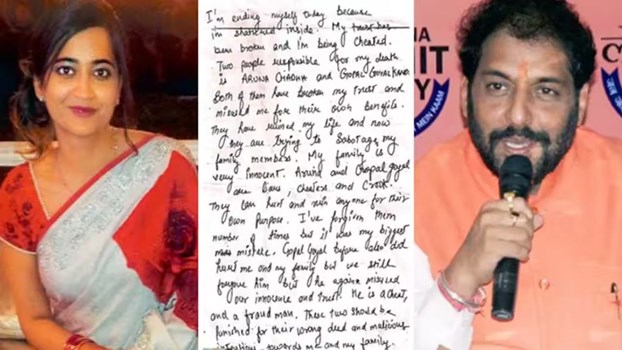 I'm ending myself today because
im shattered inside. My trust has
been broken and I'm being cheated.
Two people responsible for my death
is ARUNA CHADHA and GOPAL GOYAL KANDA
Both of them have broken my trust and
misused me for their own benefits.
They have ruined my life and now
they are trying to sabotage my
family members. My family is
very innocent. Aruna and Gopal goyal
are liars, cheaters and
They can hurt and ruin anyone for their
own purpose. I've forgiven them
number of times but it was my biggest
mistake. Gopal Goyal before also did
harm me and my family but we still
forgave him but he again misused
our innocence and trust. He is a cheat,
and a fraud man. These two should be
punished for their wrong deed and malicious
intentions towards me and my family.
NA
IT
Y
MEIN KAAM